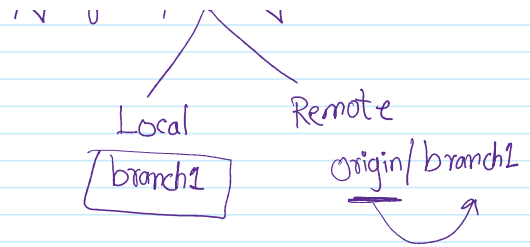 Local
Remote
branch1
origin/branch1